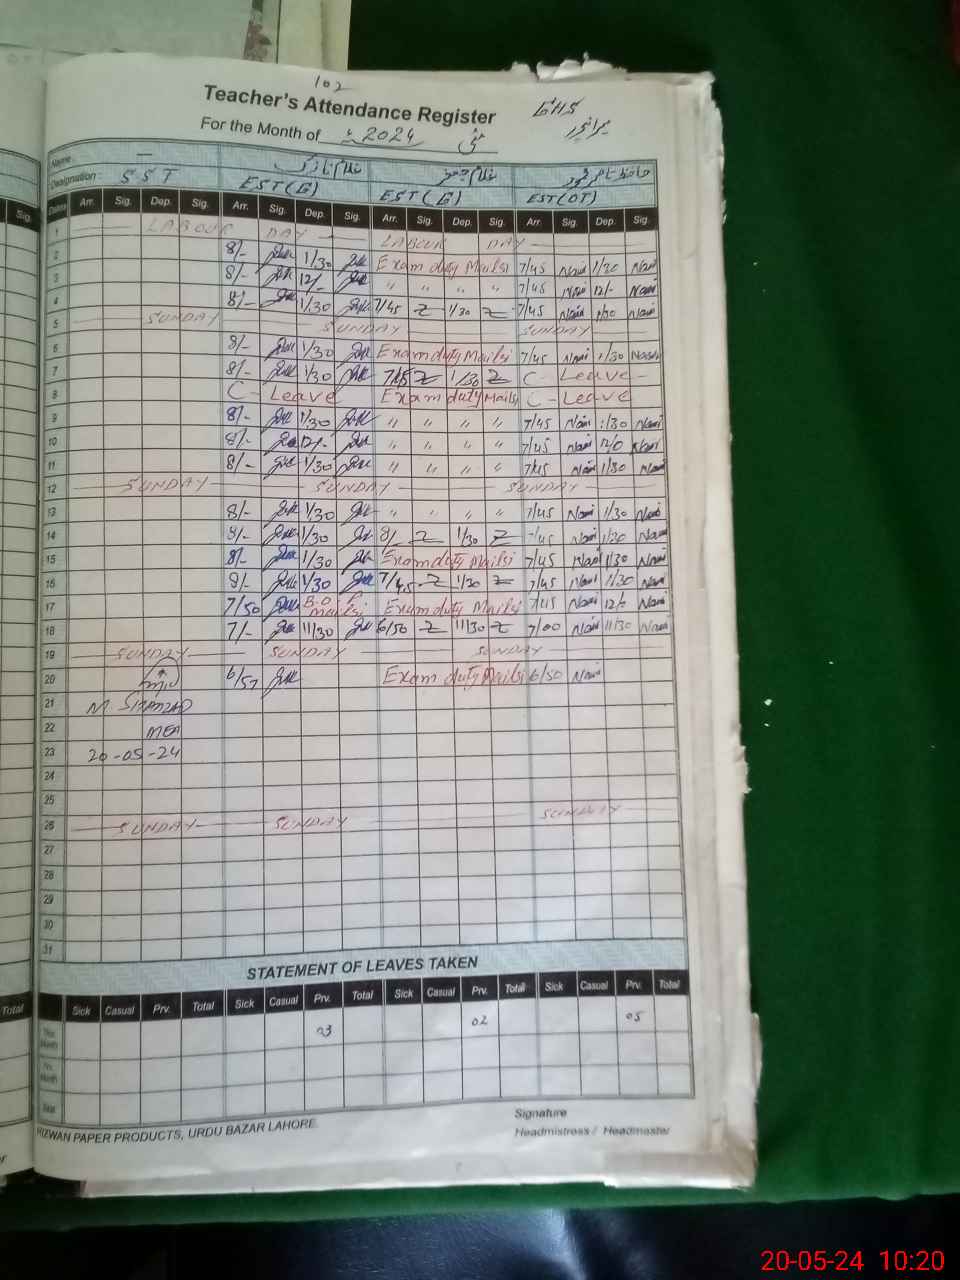 102
Teacher's Attendance Register GHS
For the Month of مئی 2024
Name :
Designation : SST EST(G) EST(G) EST(OT)
Sig. Dates Arr. Sig. Dep. Sig. Arr. Sig. Dep. Sig. Arr. Sig. Dep. Sig. Arr. Sig. Dep. Sig.
1 LABOUR DAY LABOUR DAY
2 8/- 1/30 Exam duty Mailsi 7/45 Nasi 1/30 Nasi
3 8/- 12/- " " " " 7/45 Nasi 12/- Nasi
4 8/- 1/30 7/45 Z 1/30 Z 7/45 Nasi 1/30 Nasi
5 SUNDAY SUNDAY SUNDAY
6 8/- 1/30 Exam duty Mailsi 7/45 Nasi 1/30 Nasi
7 8/- 1/30 7/45 Z 1/30 Z C - Leave -
8 C - Leave Exam duty Mailsi C - Leave
9 8/- 1/30 " " " " 7/45 Nasi 1/30 Nasi
10 8/- 12/- " " " " 7/45 Nasi 12/0 Nasi
11 8/- 1/30 " " " " 7/45 Nasi 1/30 Nasi
12 SUNDAY SUNDAY SUNDAY
13 8/- 1/30 " " " " 7/45 Nasi 1/30 Nasi
14 8/- 1/30 8/ Z 1/30 Z 7/45 Nasi 1/30 Nasi
15 8/- 1/30 Exam duty Mailsi 7/45 Nasi 1/30 Nasi
16 8/- 1/30 7/45 Z 1/30 Z 7/45 Nasi 1/30 Nasi
17 7/50 Mailsi Exam duty Mailsi 7/45 Nasi 12/0 Nasi
18 7/- 11/30 6/50 Z 11/30 Z 7/00 Nasi 11/30 Nasi
19 SUNDAY SUNDAY SUNDAY
20 6/57 Exam duty Mailsi 6/50 Nasi
21 M. SHAHZAD
22 MEA
23 20-05-24
24
25
26 SUNDAY SUNDAY SUNDAY
27
28
29
30
31
STATEMENT OF LEAVES TAKEN
Total Sick Casual Prv. Total Sick Casual Prv. Total Sick Casual Prv. Total Sick Casual Prv. Total
This Month 03 02 05
Prv. Month
Total
RIZWAN PAPER PRODUCTS, URDU BAZAR LAHORE.
Signature
Headmistress / Headmaster
20-05-24 10:20